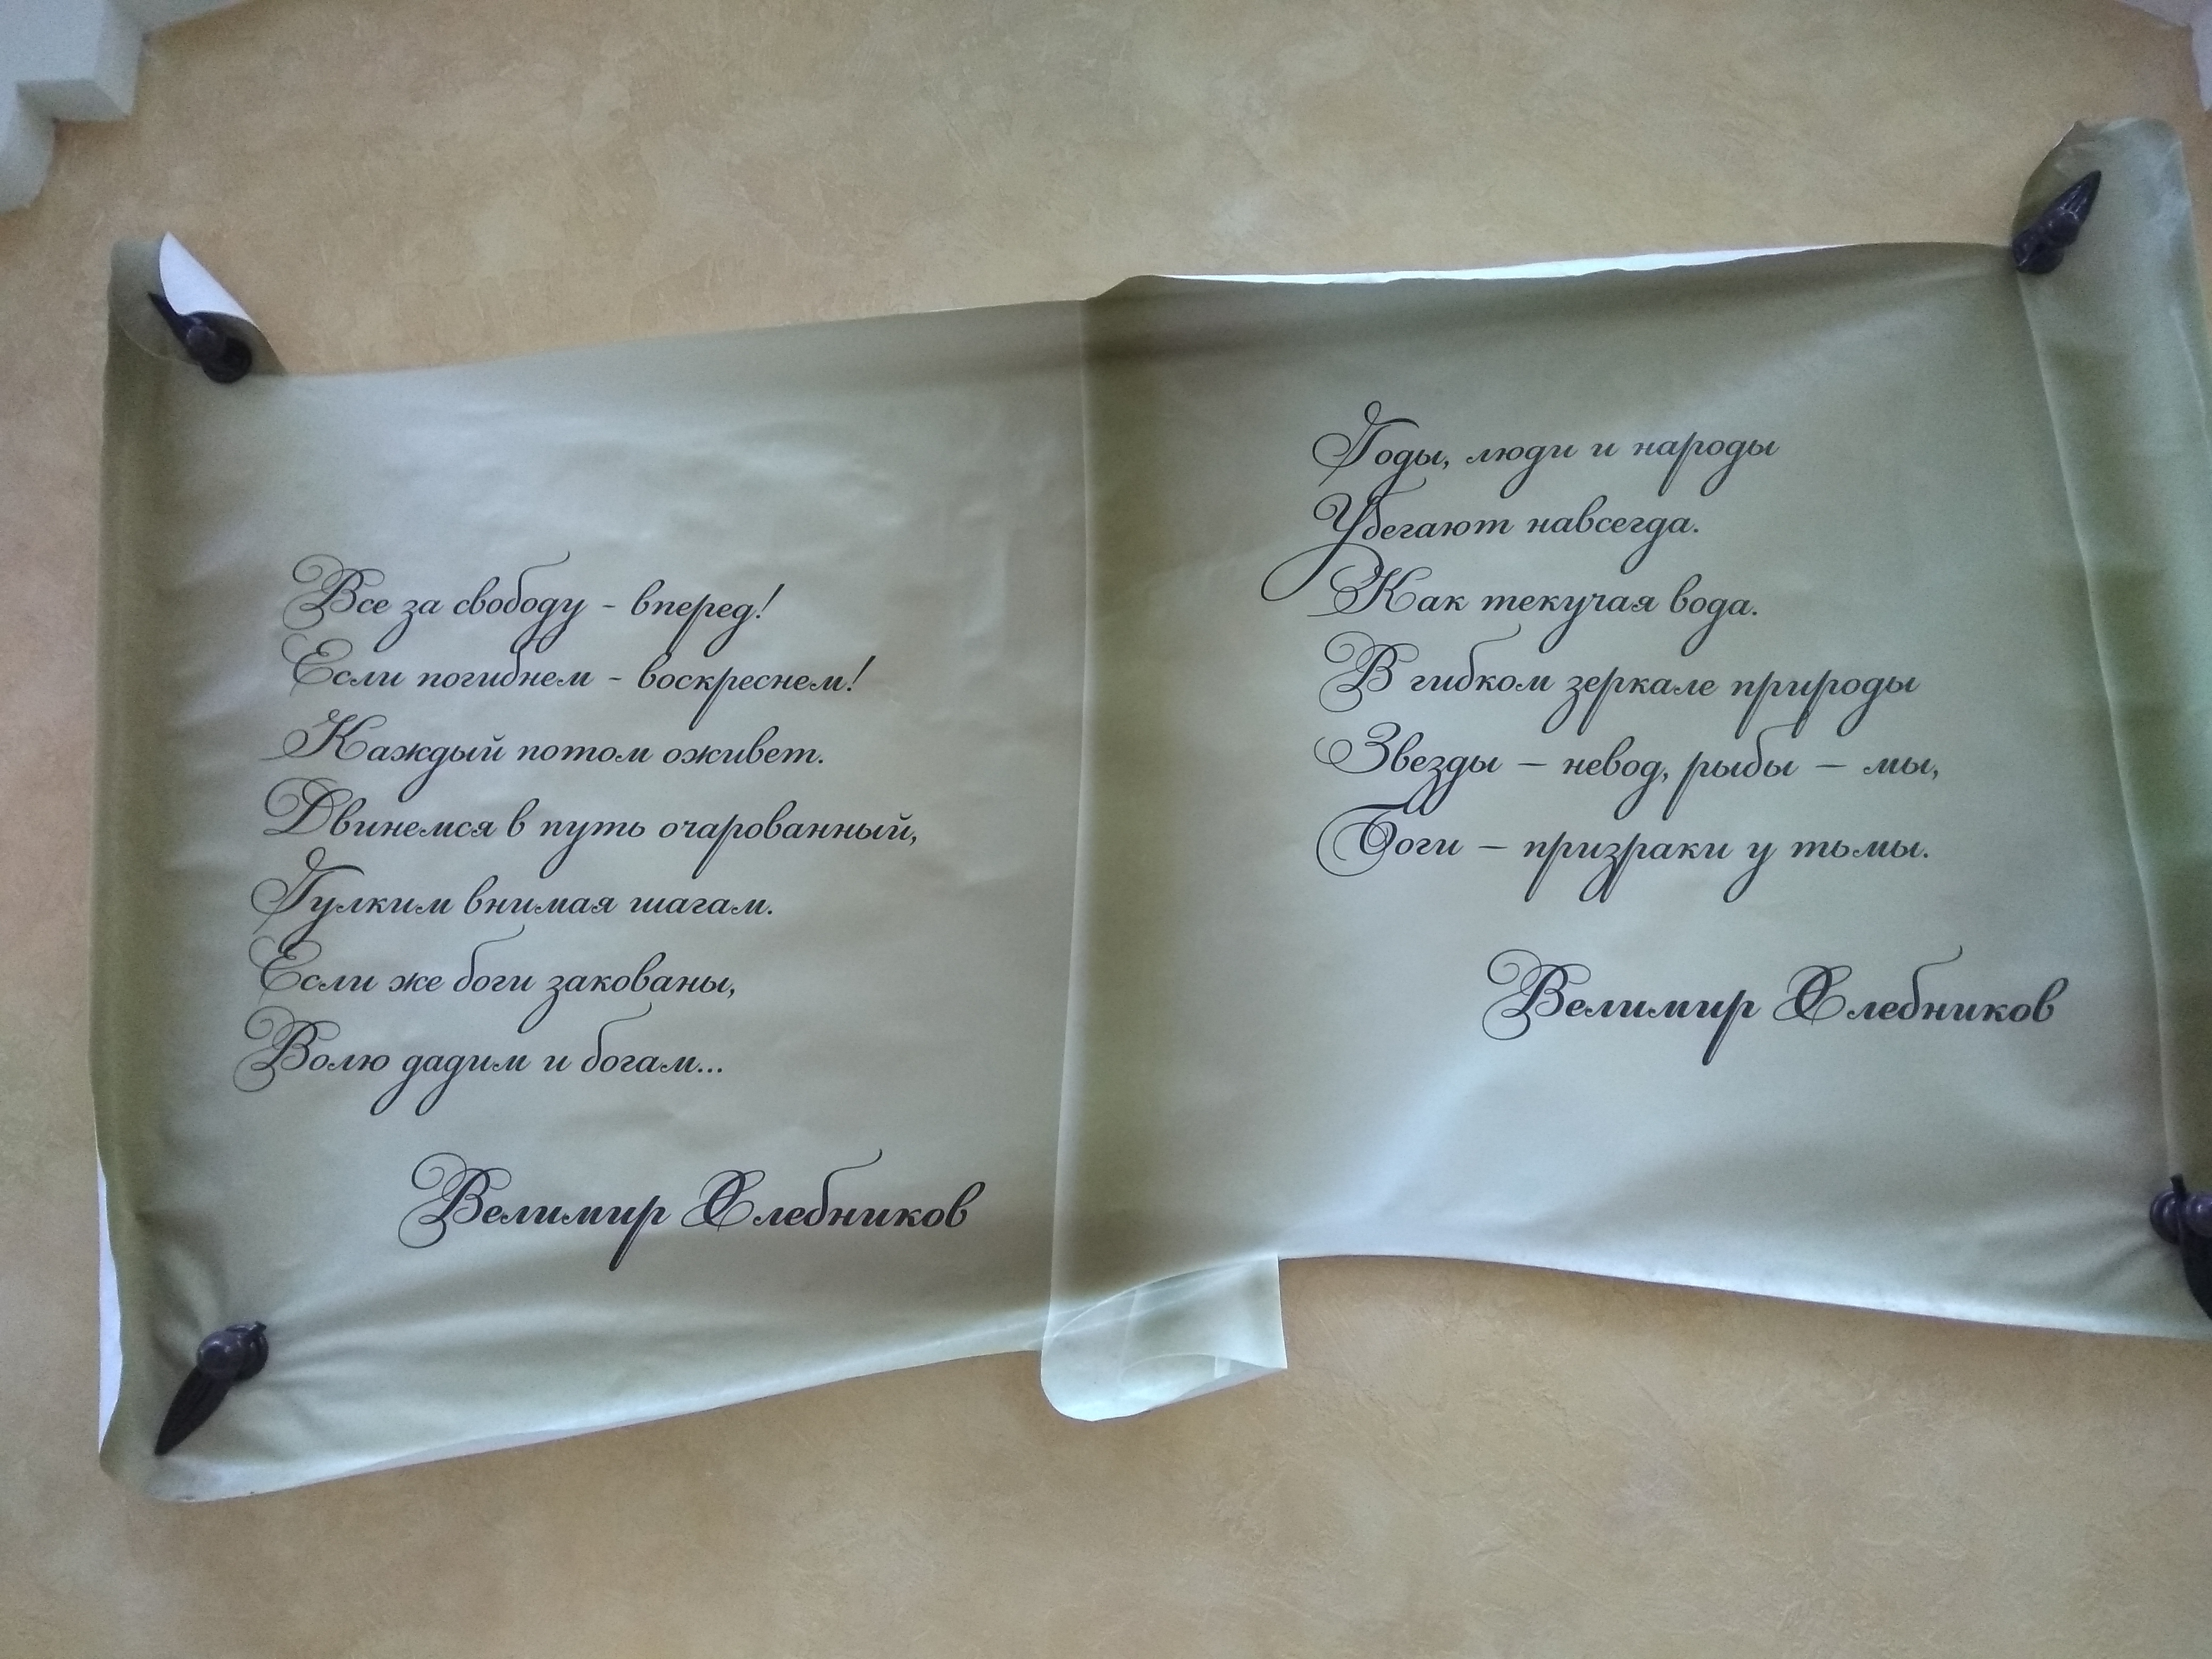 Все за свободу - вперед!
Если погибнем - воскреснем!
Каждый потом оживет.
Двинемся в путь очарованный,
Гулким внимая шагам.
Если же боги закованы,
Волю дадим и богам...
Велимир Хлебников
Годы, люди и народы
Убегают навсегда.
Как текучая вода.
В гибком зеркале природы
Звезды – невод, рыбы – мы,
Боги – призраки у тьмы.
Велимир Хлебников